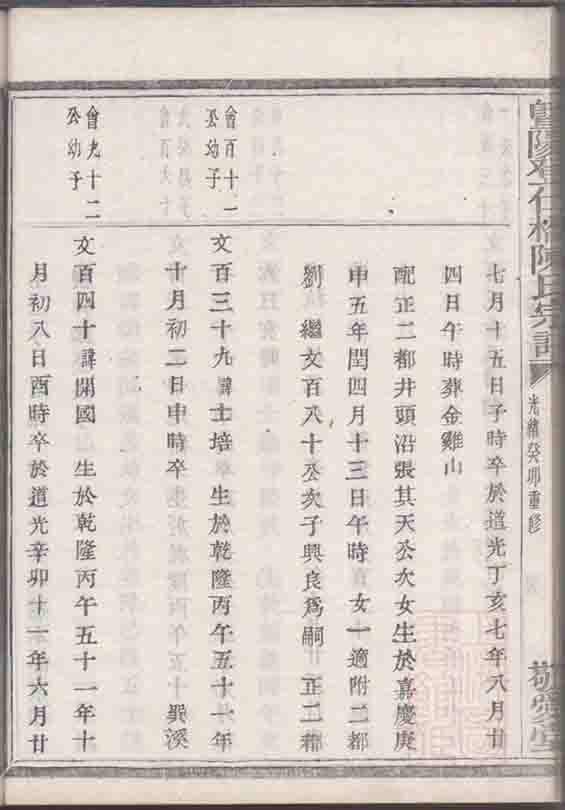 暨陽仁橋陳氏宗譜
光緒癸卯重修
敬愛堂
七月十五日子時卒於道光丁亥七年八月廿
四日午時葬金雞山
配正二都井頭沿張其天公次女生於嘉慶庚
申五年閏四月十三日午時 女一適附二都
劉 繼文百八十公次子興良爲嗣 正二都
會百十一
公幼子
文百三十九諱士培 生於乾隆丙午五十一年
十月初二日申時卒 巽溪
會九十二
公幼子
文百四十諱開國 生於乾隆丙午五十一年十
月初八日酉時卒於道光辛卯十一年六月廿